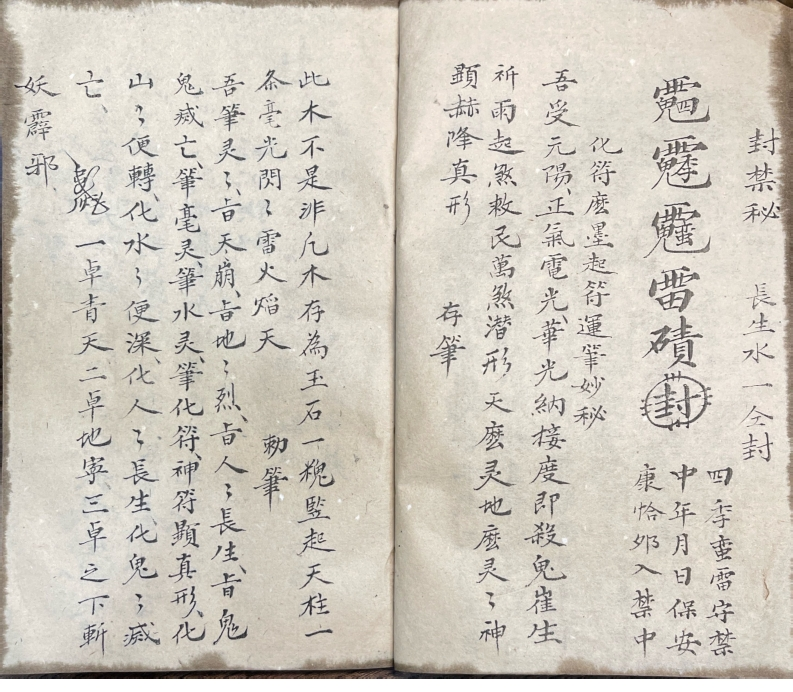 封禁秘 長生水一仝封
雷磧封
四季蛮雷守禁
中年月日保安
康恰邜入禁中
化符麽墨起符運筆妙秘
吾受元陽、正氣電光、華光納接度即殺鬼崔生
祈雨起煞救民萬煞潜形 天麽灵地麽灵〻神
顕赫降真形 存筆
此木不是非凡木存為玉石一槐監起天柱一
条毫光閃〻雷火焰天 勅筆
吾筆灵〻、㫖天〻崩、㫖地〻烈、㫖人〻長生、㫖鬼
鬼滅亡、筆毫灵、筆水灵、筆化符、神符顕真形、化
山〻便轉、化水〻便深、化人〻長生、化鬼〻滅
亡、 一卓青天、二卓地寧、三卓之下斬
妖霹邪、